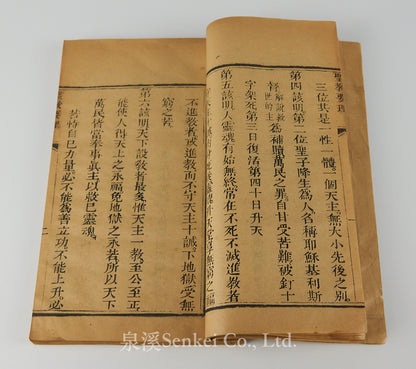 聖教要理
三位其是一性一體一個天主無大小先後之別
第四該明第二位聖子降生為人名稱耶穌基利斯
督解說救世的主為補贖萬民之罪自甘受苦難被釘十
字架死第三日復活第四十日升天
第五該明人靈魂有始無終常在不死不滅進教者
不進教者或進教而不守天主十誡下地獄受無
窮之苦
第六該明天下設教者最多惟天主一教至公至正
能使人得天主之永福免地獄之永苦所以天下
萬民皆當奉事真主以救已靈魂
若恃自已力量必不能為善立功不能上升必
泉溪Senkei Co., Ltd.